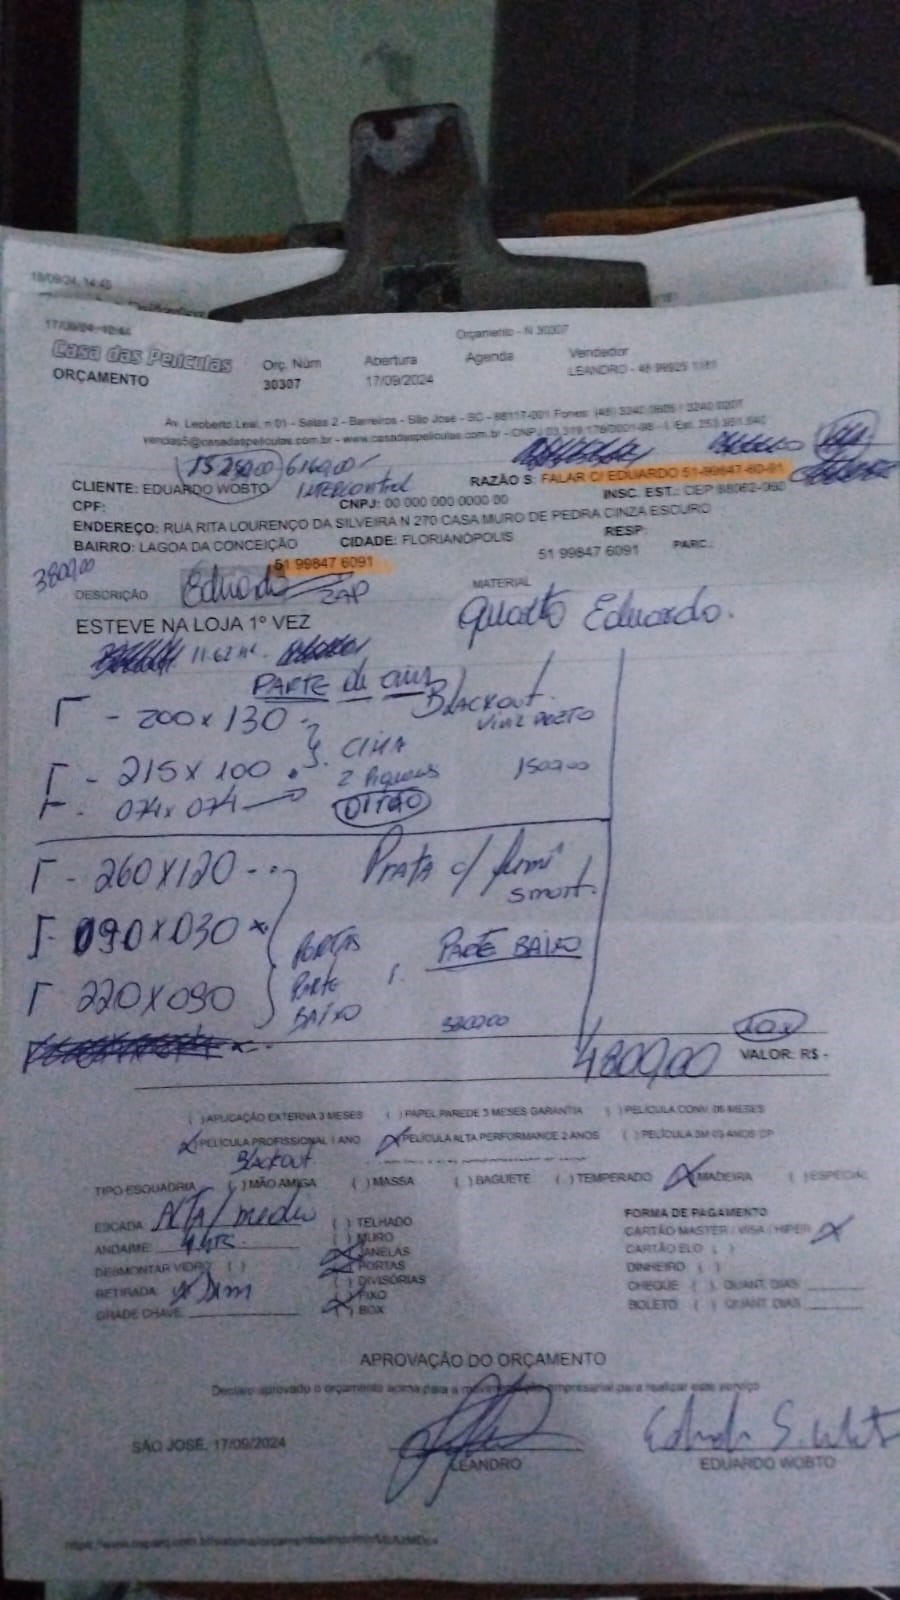 18/09/24, 14:45
17/09/24
Orçamento - N 30307
Casa das Películas
ORÇAMENTO
Orç. Núm
30307
Abertura
17/09/2024
Agenda
Vendedor
LEANDRO - 48 99925
Av. Leoberto Leal, n 01 - Salas 2 - Barreiros - São José - SC - 88117-001 Fones: (48) 3240 0605 / 3240 0207
vendas5@casadaspeliculas.com.br - www.casadaspeliculas.com.br - CNPJ
15.250,00 6160,00
CLIENTE: EDUARDO WOBTO
RAZÃO S: FALAR C/ EDUARDO 51-99847-60-91
CPF:
CNPJ: 00 000 000 0000 00
INSC. EST.: CEP 88062-060
ENDEREÇO: RUA RITA LOURENÇO DA SILVEIRA N 270 CASA MURO DE PEDRA CINZA ESCURO
BAIRRO: LAGOA DA CONCEIÇÃO CIDADE: FLORIANÓPOLIS RESP:
51 99847 6091
51 99847 6091 PARC.:
3800,00
DESCRIÇÃO
Eduardo ZAP
MATERIAL
ESTEVE NA LOJA 1º VEZ
Quarto Eduardo.
11.62 M²
PARTE de cima
Blackout
200 x 130
215 x 100
CIMA
2 Piquenos
1500,00
074 x 074
260 x 120
PRATA c/ fumê
smart.
090 x 030
PORTAS
PARTE
BAIXO
PARTE BAIXO
220 x 090
4800,00
10x
VALOR: R$ -
( ) APLICAÇÃO EXTERNA 3 MESES ( ) PAPEL PAREDE 3 MESES GARANTIA ( ) PELÍCULA CONV. 06 MESES
X PELÍCULA PROFISSIONAL 1 ANO X PELÍCULA ALTA PERFORMANCE 2 ANOS ( ) PELÍCULA 3M 05 ANOS
Blackout
TIPO ESQUADRIA ( ) MÃO AMIGA ( ) MASSA ( ) BAGUETE ( ) TEMPERADO X MADEIRA ( ) ESPECIAL
ESCADA: ALTA / media
ANDAIME:
DESMONTAR VIDRO ( )
RETIRADA: Sim
GRADE CHAVE:
( ) TELHADO
( ) MURO
X JANELAS
X PORTAS
( ) DIVISÓRIAS
X FIXO
( ) BOX
FORMA DE PAGAMENTO
CARTÃO MASTER / VISA / HIPER X
CARTÃO ELO ( )
DINHEIRO ( )
CHEQUE ( ) QUANT. DIAS
BOLETO ( ) QUANT. DIAS
APROVAÇÃO DO ORÇAMENTO
Declaro aprovado o orçamento acima para a movimentação empresarial para realizar este serviço
SÃO JOSÉ, 17/09/2024
LEANDRO
EDUARDO WOBTO